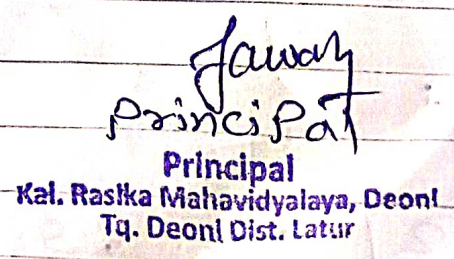 Principal
Principal
Kal. Rasika Mahavidyalaya, Deoni
Tq. Deoni Dist. Latur